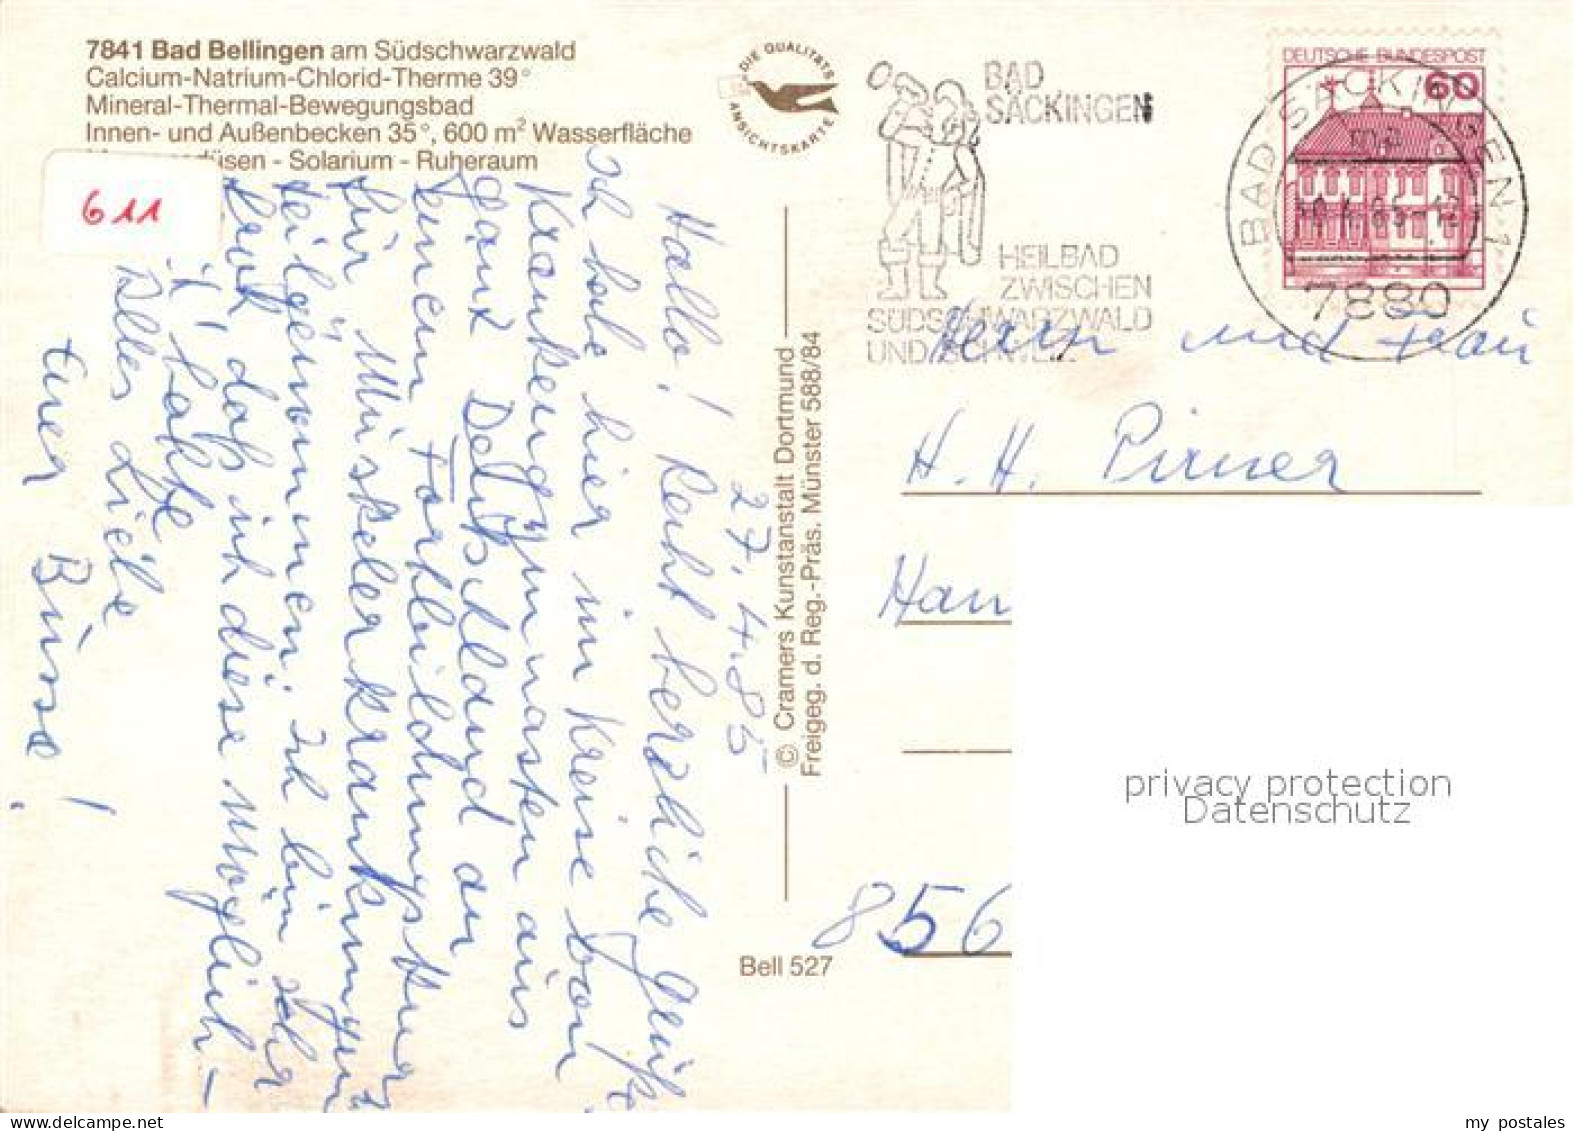 7841 Bad Bellingen am Südschwarzwald
Calcium-Natrium-Chlorid-Therme 39°
Mineral-Thermal-Bewegungsbad
Innen- und Außenbecken 35°, 600 m² Wasserfläche
düsen - Solarium - Ruheraum
611
DIE QUALITÄTS
ANSICHTSKARTE
BAD
SÄCKINGEN
HEILBAD
ZWISCHEN
SÜDSCHWARZWALD
UND SCHWEIZ
DEUTSCHE BUNDESPOST
60
BAD SÄCKINGEN 1
7880
27.4.85
Hallo! Recht herzliche Grüße
Ich habe hier im Kreise von
Krankengymnasten aus
ganz Deutschland an
einem Fortbildungskurs
für Muskelerkrankungen
teilgenommen. Ich bin sehr
froh, daß ich diese Möglich-
k. hatte
Alles Liebe
Eurer Büssa!
© Cramers Kunstanstalt Dortmund
Freigeg. d. Reg.-Präs. Münster 588/84
Bell 527
Herrn und Frau
H. H. Pirner
Han
856
privacy protection
Datenschutz
my postales